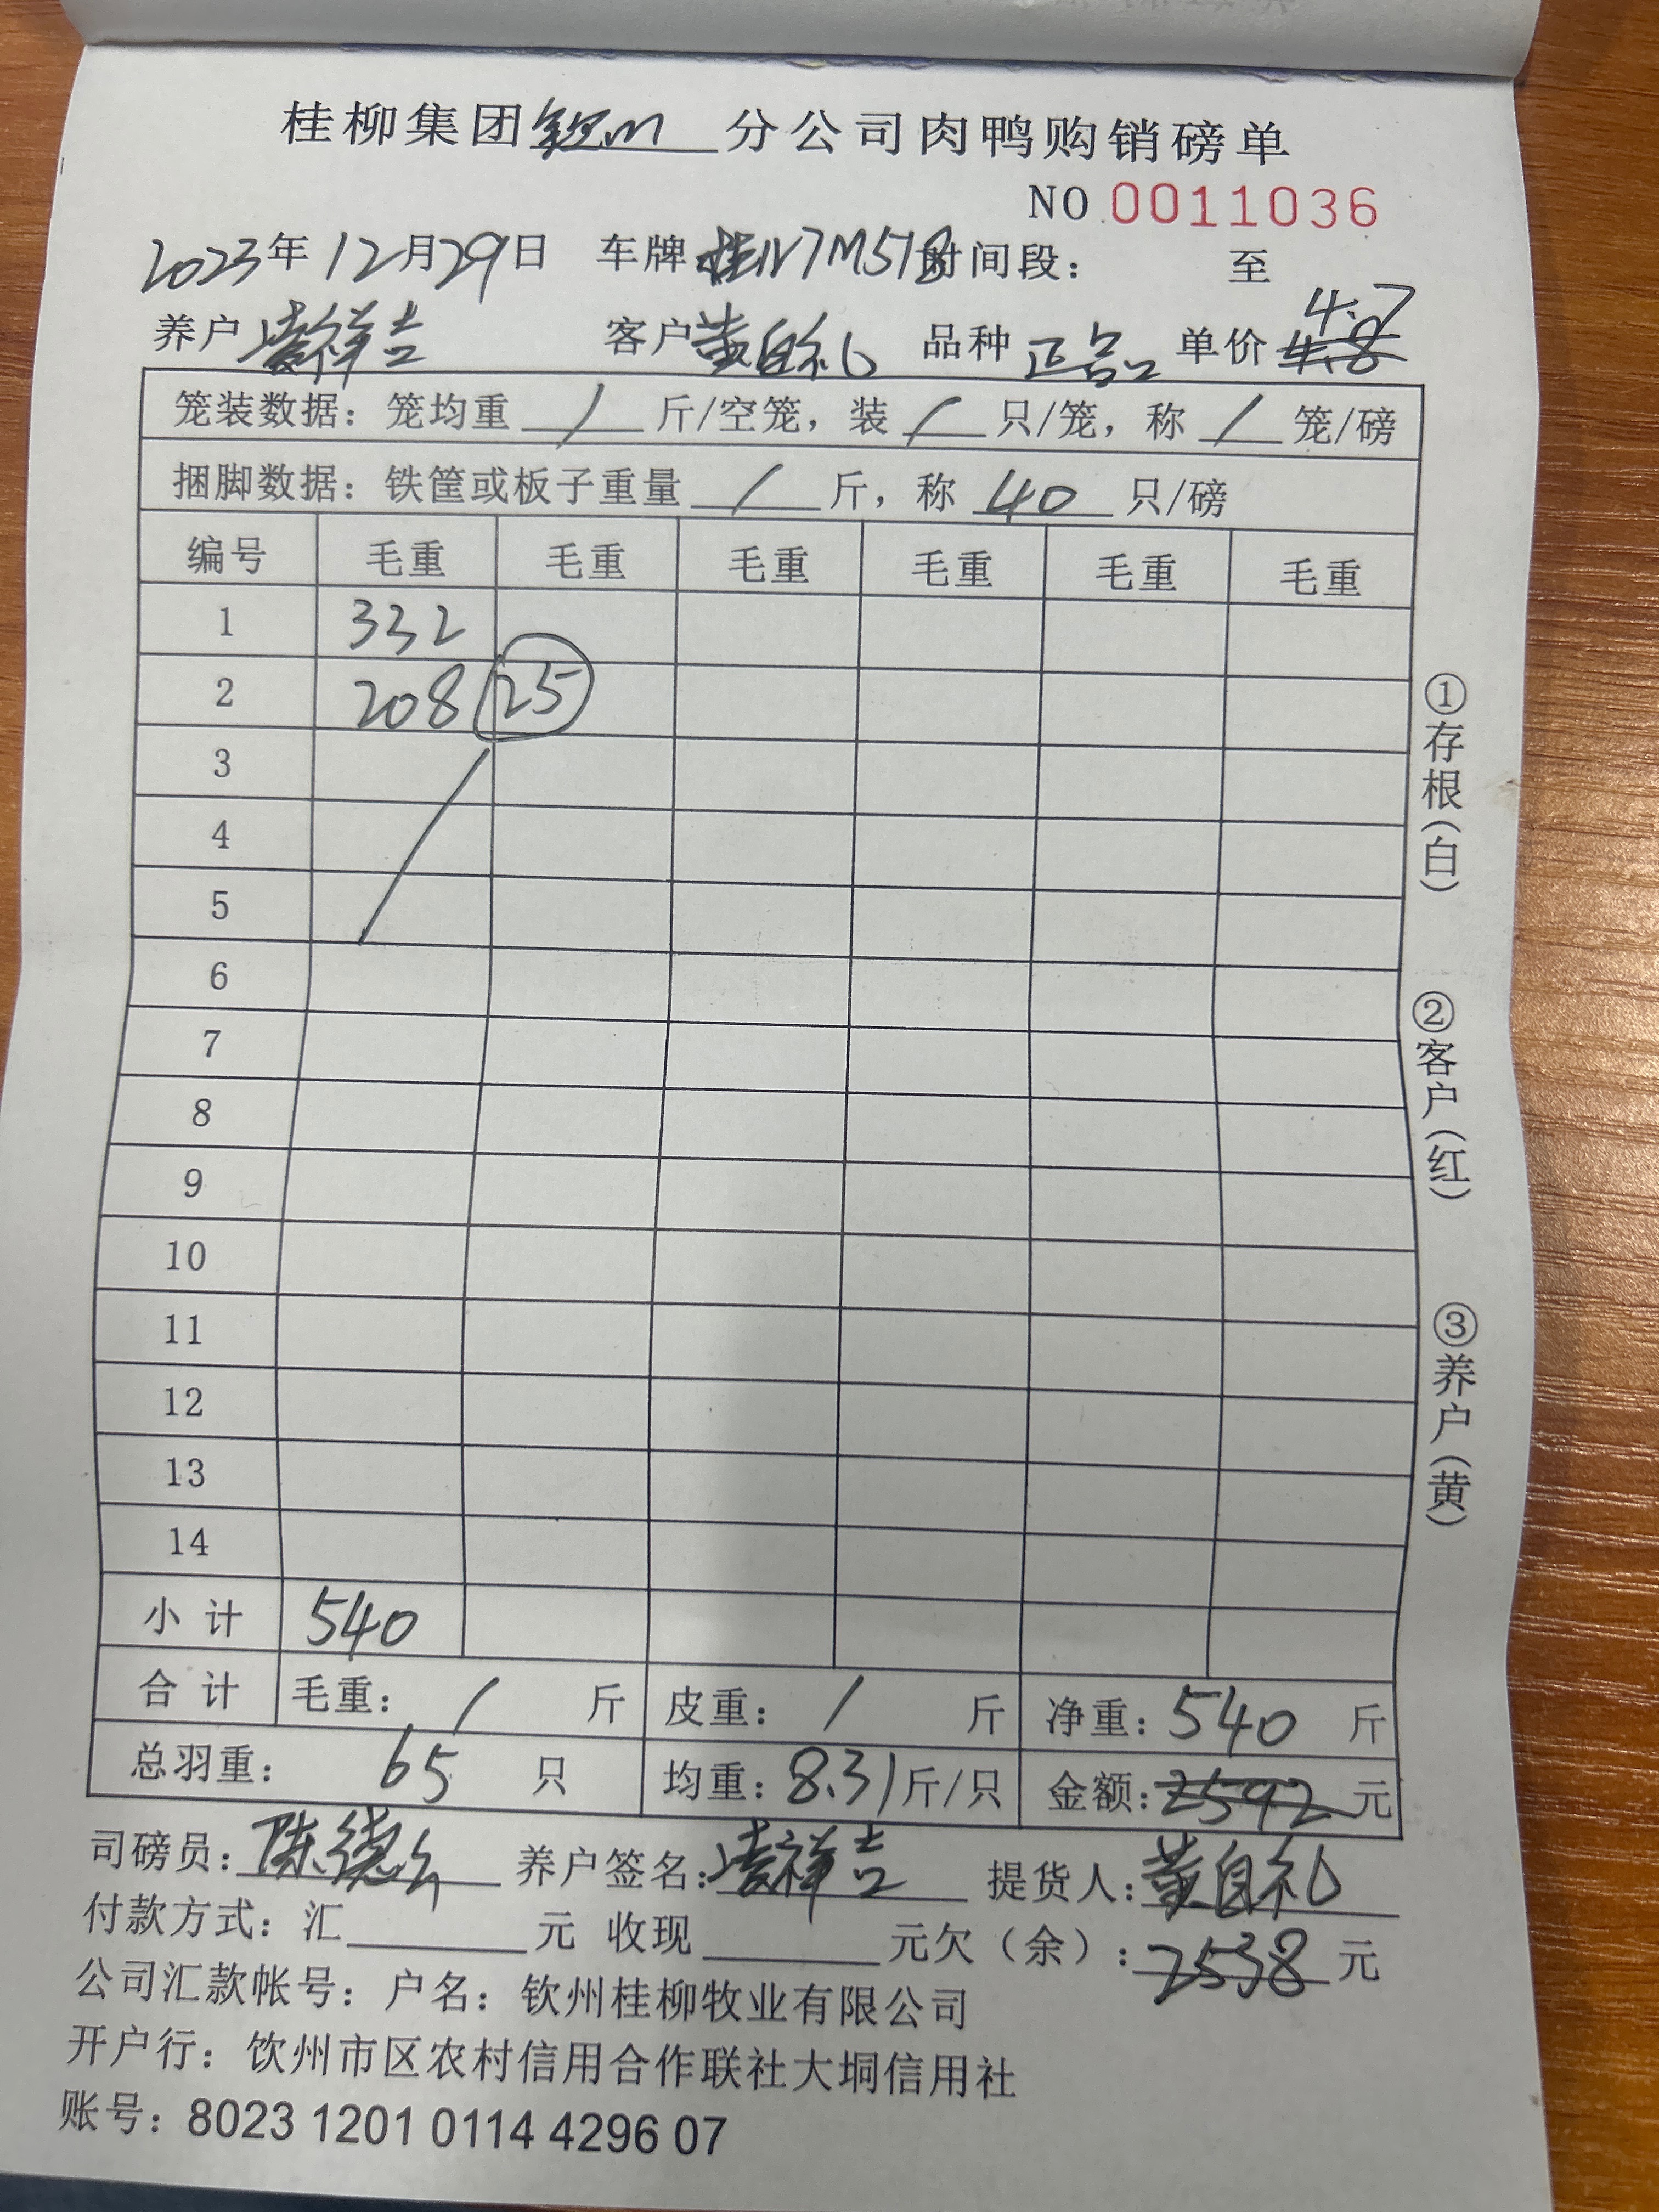 桂柳集团钦州分公司肉鸭购销磅单
NO 0011036
2023年12月29日 车牌桂N7M518时间段: 至
4.7
养户凌祥吉 客户黄自礼 品种正品 单价4.8
笼装数据: 笼均重 / 斤/空笼, 装 / 只/笼, 称 / 笼/磅
捆脚数据: 铁筐或板子重量 / 斤, 称 40 只/磅
编号 毛重 毛重 毛重 毛重 毛重 毛重
1 332
2 208 25
3
4
5
6
7
8
9
10
11
12
13
14
小计 540
合计 毛重: / 斤 皮重: / 斤 净重: 540 斤
总羽重: 65 只 均重: 8.31斤/只 金额: 2592 元
司磅员: 陈德 养户签名: 凌祥吉 提货人: 黄自礼
付款方式: 汇 元 收现 元欠(余): 2538 元
公司汇款帐号: 户名: 钦州桂柳牧业有限公司
开户行: 饮州市区农村信用合作联社大垌信用社
账号: 8023 1201 0114 4296 07
①存根(白)
②客户(红)
③养户(黄)